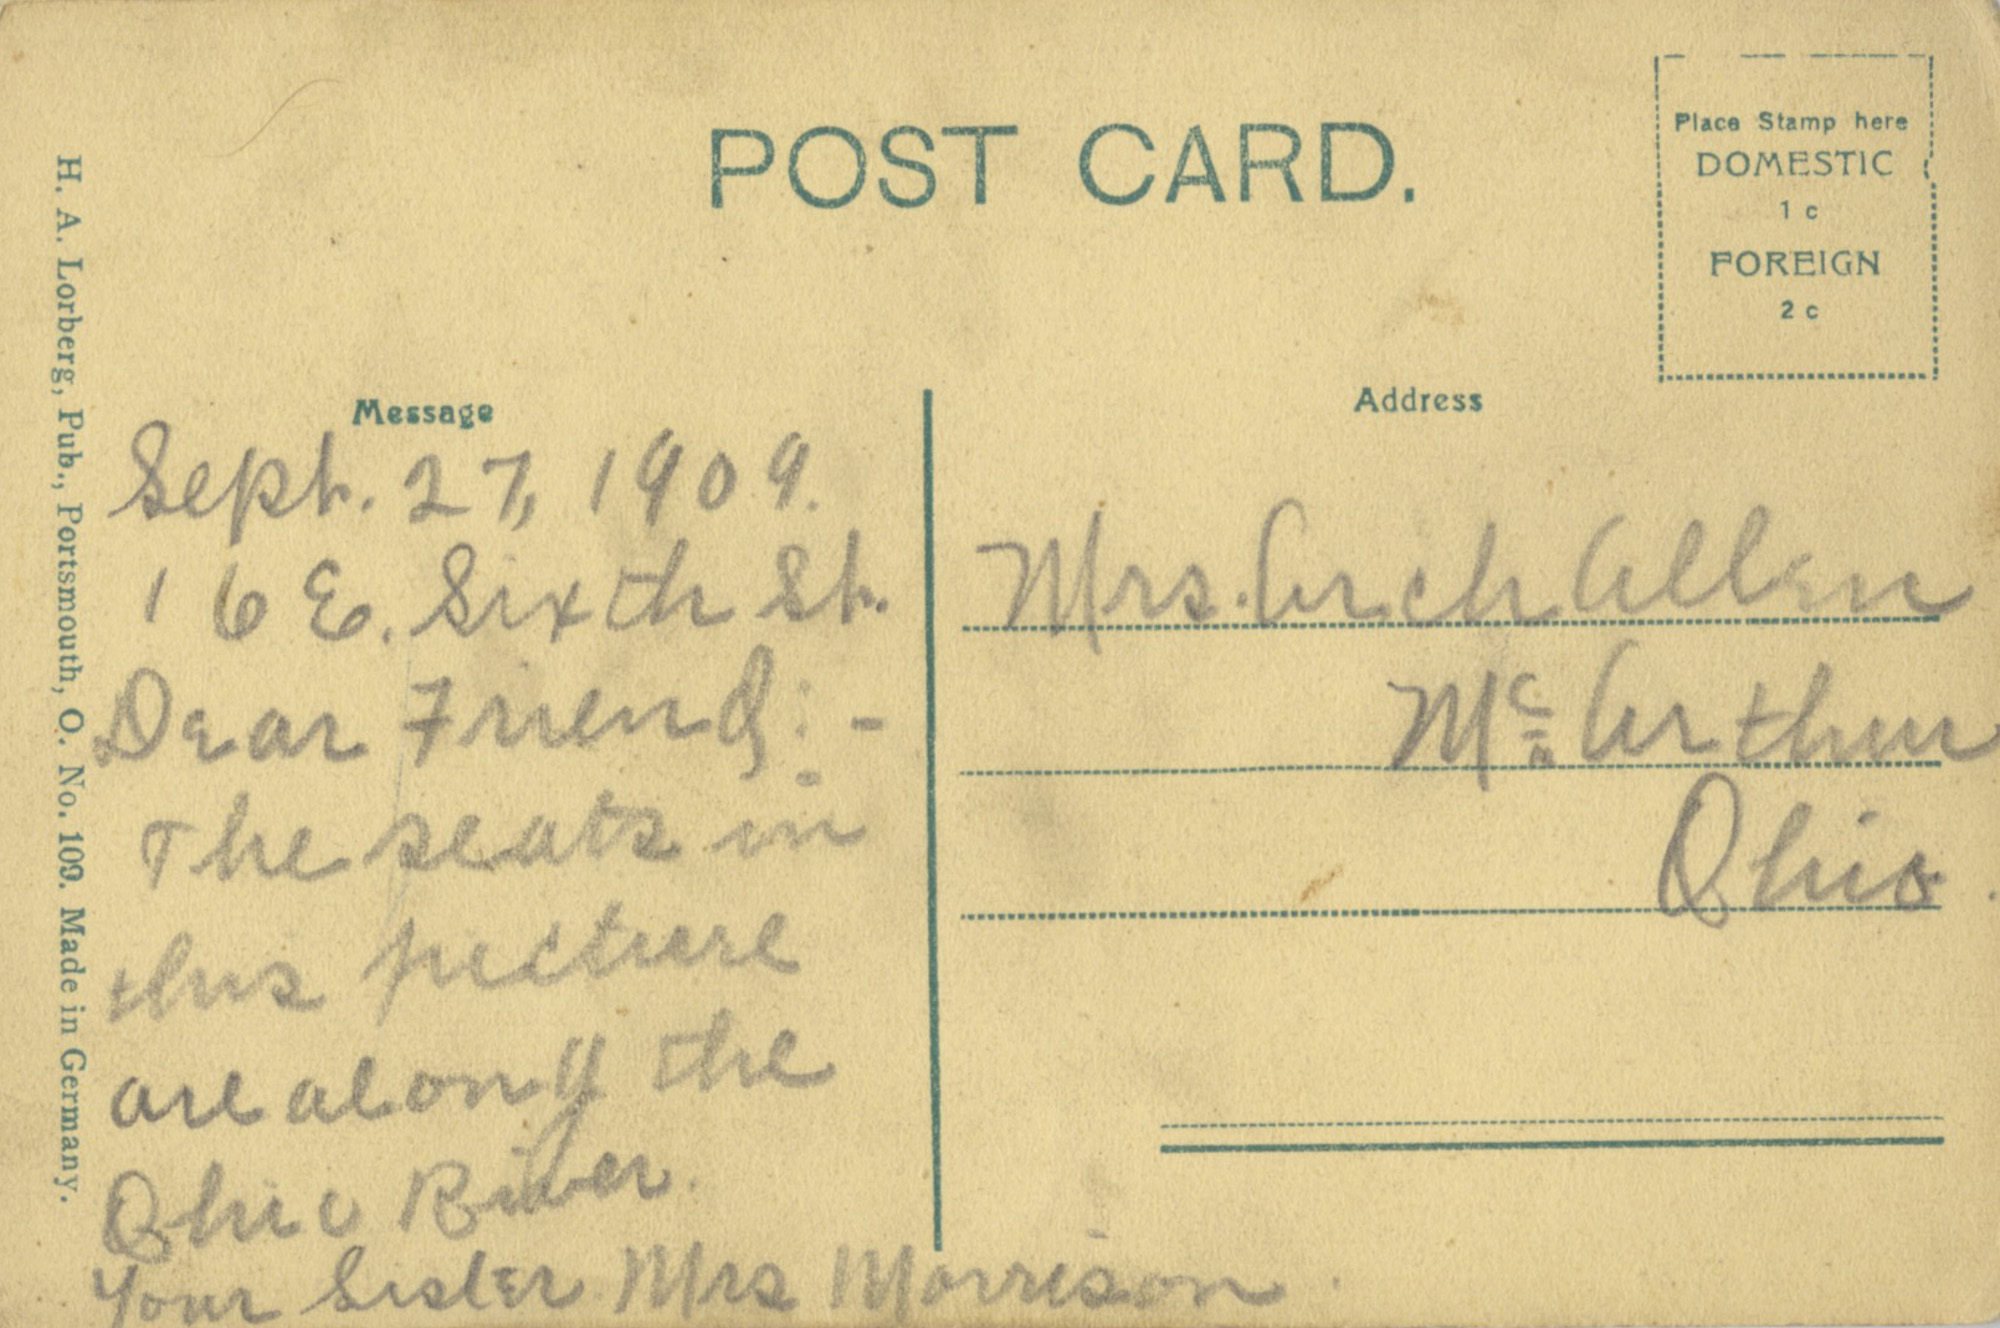 POST CARD.
Place Stamp here
DOMESTIC
1 c
FOREIGN
2 c
H. A. Lorberg, Pub., Portsmouth, O. No. 109. Made in Germany.
Message
Sept. 27, 1909.
16 E. Sixth St.
Dear Friend:-
The seats in
this picture
are along the
Ohio River.
Your Sister Mrs Morrison.
Address
Mrs. Arch Allen
Mc Arthur
Ohio.